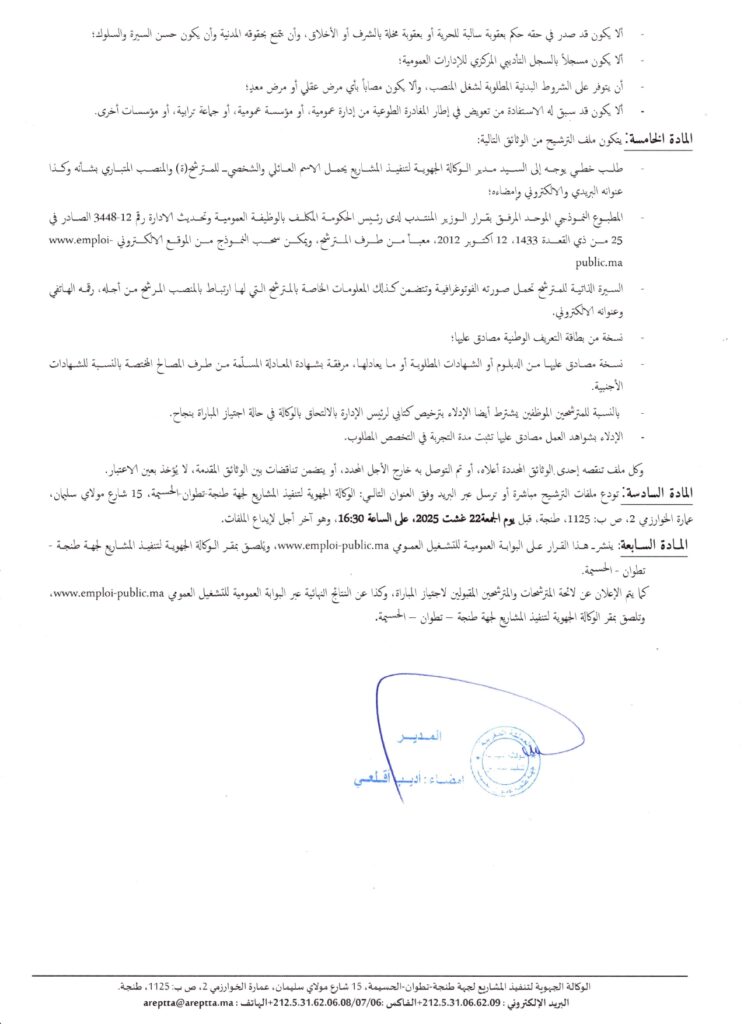 - ألا يكون قد صدر في حقه حكم بعقوبة سالبة للحرية أو بعقوبة مخلة بالشرف أو الأخلاق، وأن يتمتع بحقوقه المدنية وأن يكون حسن السيرة والسلوك؛
- ألا يكون مسجلاً بالسجل التأديبي المركزي للإدارات العمومية؛
- أن يتوفر على الشروط البدنية المطلوبة لشغل المنصب، وألا يكون مصاباً بأي مرض عقلي أو مرض معدٍ؛
- ألا يكون قد سبق له الاستفادة من تعويض في إطار المغادرة الطوعية من إدارة عمومية، أو مؤسسة عمومية، أو جماعة ترابية، أو مؤسسات أخرى.
المادة الخامسة: يتكون ملف الترشيح من الوثائق التالية:
- طلب خطي يوجه إلى السيد مدير الوكالة الجهوية لتنفيذ المشاريع يحمل الاسم العائلي والشخصي للمترشح(ة) والمنصب المتباري بشأنه وكذا
عنوانه البريدي والالكتروني وإمضاءه؛
- المطبوع النموذجي الموحد المرفق بقرار الوزير المنتدب لدى رئيس الحكومة المكلف بالوظيفة العمومية وتحديث الادارة رقم 12-3448 الصادر في
25 من ذي القعدة 1433، 12 أكتوبر 2012، معبأ من طرف المترشح، ويمكن سحب النموذج من الموقع الالكتروني www.emploi-
public.ma
- السيرة الذاتية للمترشح تحمل صورته الفوتوغرافية وتتضمن كذلك المعلومات الخاصة بالمترشح التي لها ارتباط بالمنصب المرشح من أجله، رقمه الهاتفي
وعنوانه الالكتروني.
- نسخة من بطاقة التعريف الوطنية مصادق عليها؛
- نسخة مصادق عليها من الدبلوم أو الشهادات المطلوبة أو ما يعادلها، مرفقة بشهادة المعادلة المسلّمة من طرف المصالح المختصة بالنسبة للشهادات
الأجنبية.
- بالنسبة للمترشحين الموظفين يشترط أيضا الإدلاء بترخيص كتابي لرئيس الإدارة بالالتحاق بالوكالة في حالة اجتياز المباراة بنجاح.
- الإدلاء بشواهد العمل مصادق عليها تثبت مدة التجربة في التخصص المطلوب.
وكل ملف تنقصه إحدى الوثائق المحددة أعلاه، أو تم التوصل به خارج الأجل المحدد، أو يتضمن تناقضات بين الوثائق المقدمة، لا يؤخذ بعين الاعتبار.
المادة السادسة: تودع ملفات الترشيح مباشرة أو ترسل عبر البريد وفق العنوان التالي: الوكالة الجهوية لتنفيذ المشاريع لجهة طنجة-تطوان-الحسيمة، 15 شارع مولاي سليمان،
عمارة الخوارزمي 2، ص ب: 1125، طنجة، قبل يوم الجمعة22 غشت 2025، على الساعة 16:30، وهو آخر أجل لايداع الملفات.
المادة السابعة: ينشر هذا القرار على البوابة العمومية للتشغيل العمومي www.emploi-public.ma، ويلصق بمقر الوكالة الجهوية لتنفيذ المشاريع لجهة طنجة -
تطوان - الحسيمة.
كما يتم الإعلان عن لائحة المترشحات والمترشحين المقبولين لاجتياز المباراة، وكذا عن النتائج النهائية عبر البوابة العمومية للتشغيل العمومي www.emploi-public.ma،
وتلصق بمقر الوكالة الجهوية لتنفيذ المشاريع لجهة طنجة – تطوان – الحسيمة.
المدير
امضاء : اديب اقلعي
الوكالة الجهوية لتنفيذ المشاريع لجهة طنجة-تطوان-الحسيمة، 15 شارع مولاي سليمان، عمارة الخوارزمي 2، ص ب: 1125، طنجة.
البريد الإلكتروني : areptta@areptta.ma الهاتف :+212.5.31.62.06.08/07/06 الفاكس :+212.5.31.06.62.09